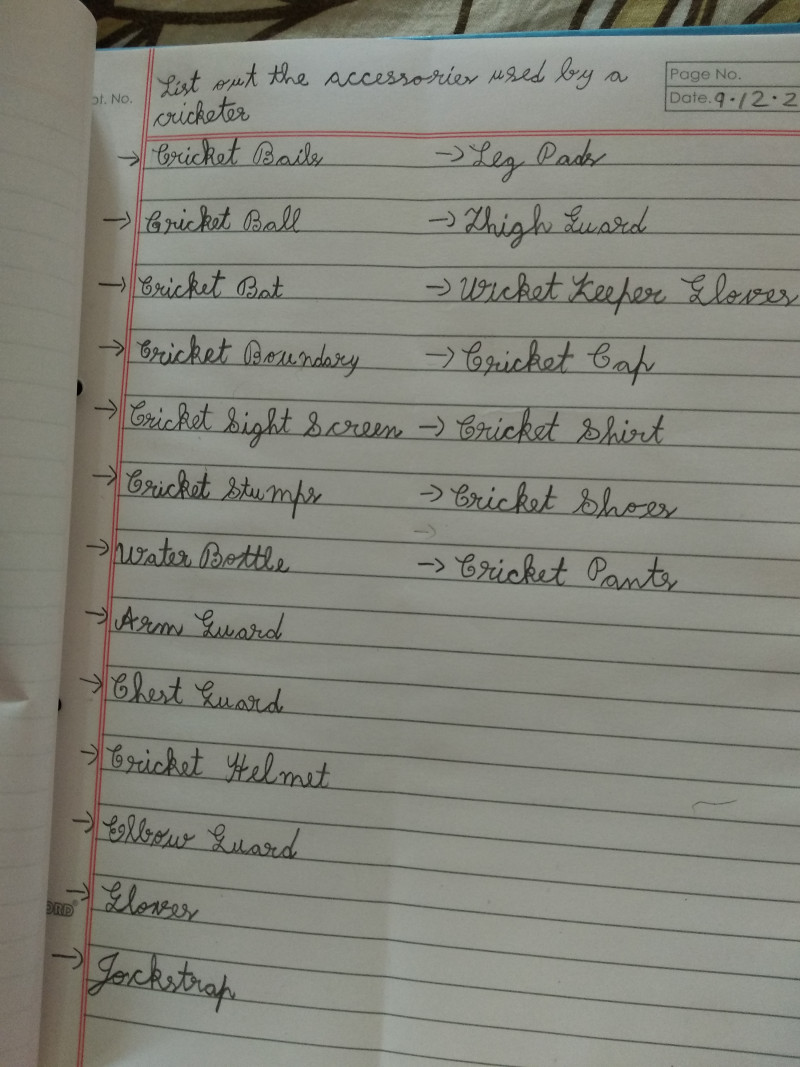 List out the accessories used by a
cricketer
pt. No.
Page No.
Date. 9.12.2
→ Cricket Bails
→ Cricket Ball
→ Cricket Bat
→ Cricket Boundary
→ Cricket Sight Screen
→ Cricket Stumps
→ Water Bottle
→ Arm Guard
→ Chest Guard
→ Cricket Helmet
→ Elbow Guard
→ Gloves
→ Jockstrap
→ Leg Pads
→ Thigh Guard
→ Wicket Keeper Gloves
→ Cricket Cap
→ Cricket Shirt
→ Cricket Shoes
→
→ Cricket Pants